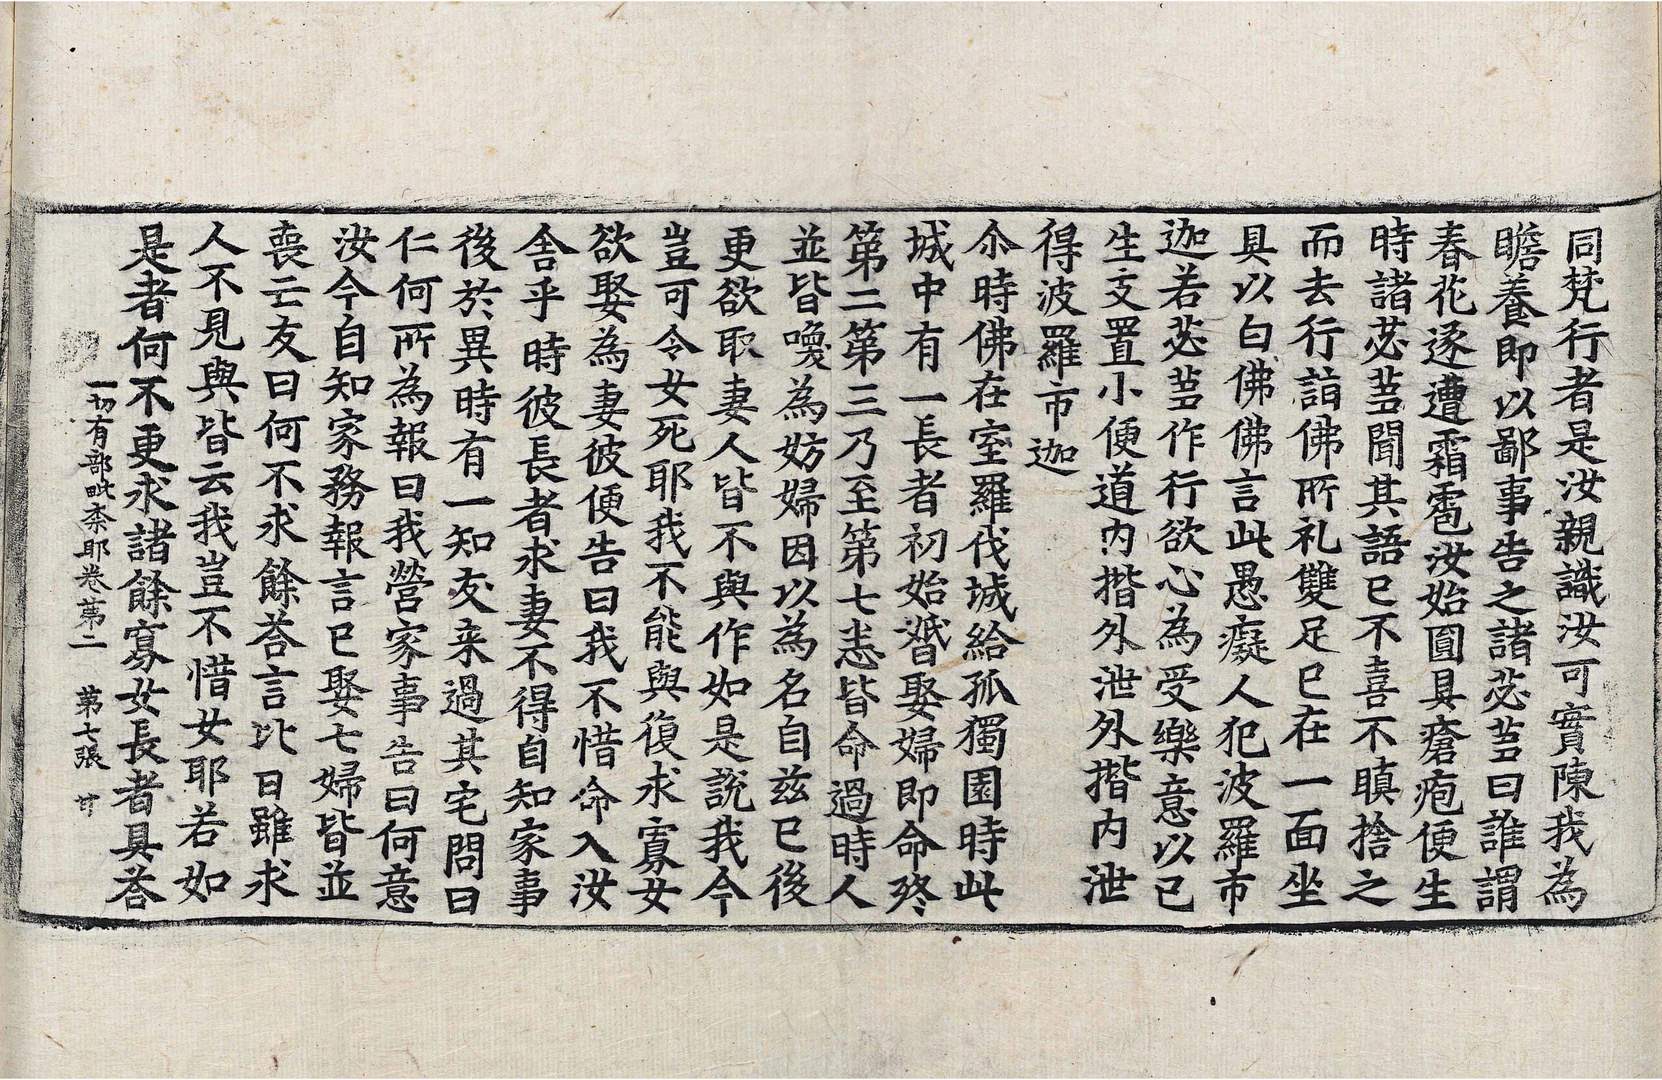 同梵行者是汝親識汝可實陳我為
瞻養即以鄙事告之諸苾芻曰誰謂
春花逐遭霜雹汝始圓具瘡疱便生
時諸苾芻聞其語已不喜不瞋捨之
而去行詣佛所礼雙足已在一面坐
具以白佛佛言此愚癡人犯波羅市
迦若苾芻作行欲心為受樂意以己
生支置小便道內揩外泄外揩內泄
得波羅市迦
尒時佛在室羅伐城給孤獨園時此
城中有一長者初始婚娶婦即命終
第二第三乃至第七悉皆命過時人
並皆喚為妨婦因以為名自茲已後
更欲取妻人皆不與作如是說我今
豈可令女死耶我不能與復求寡女
欲娶為妻彼便告曰我不惜命入汝
舍乎時彼長者求妻不得自知家事
後於異時有一知友来過其宅問曰
仁何所為報曰我營家事告曰何意
汝今自知家務報言已娶七婦皆並
喪亡友曰何不求餘荅言比日雖求
人不見與皆云我豈不惜女耶若如
是者何不更求諸餘寡女長者具荅
一切有部毗柰耶卷第二 第七張 甘